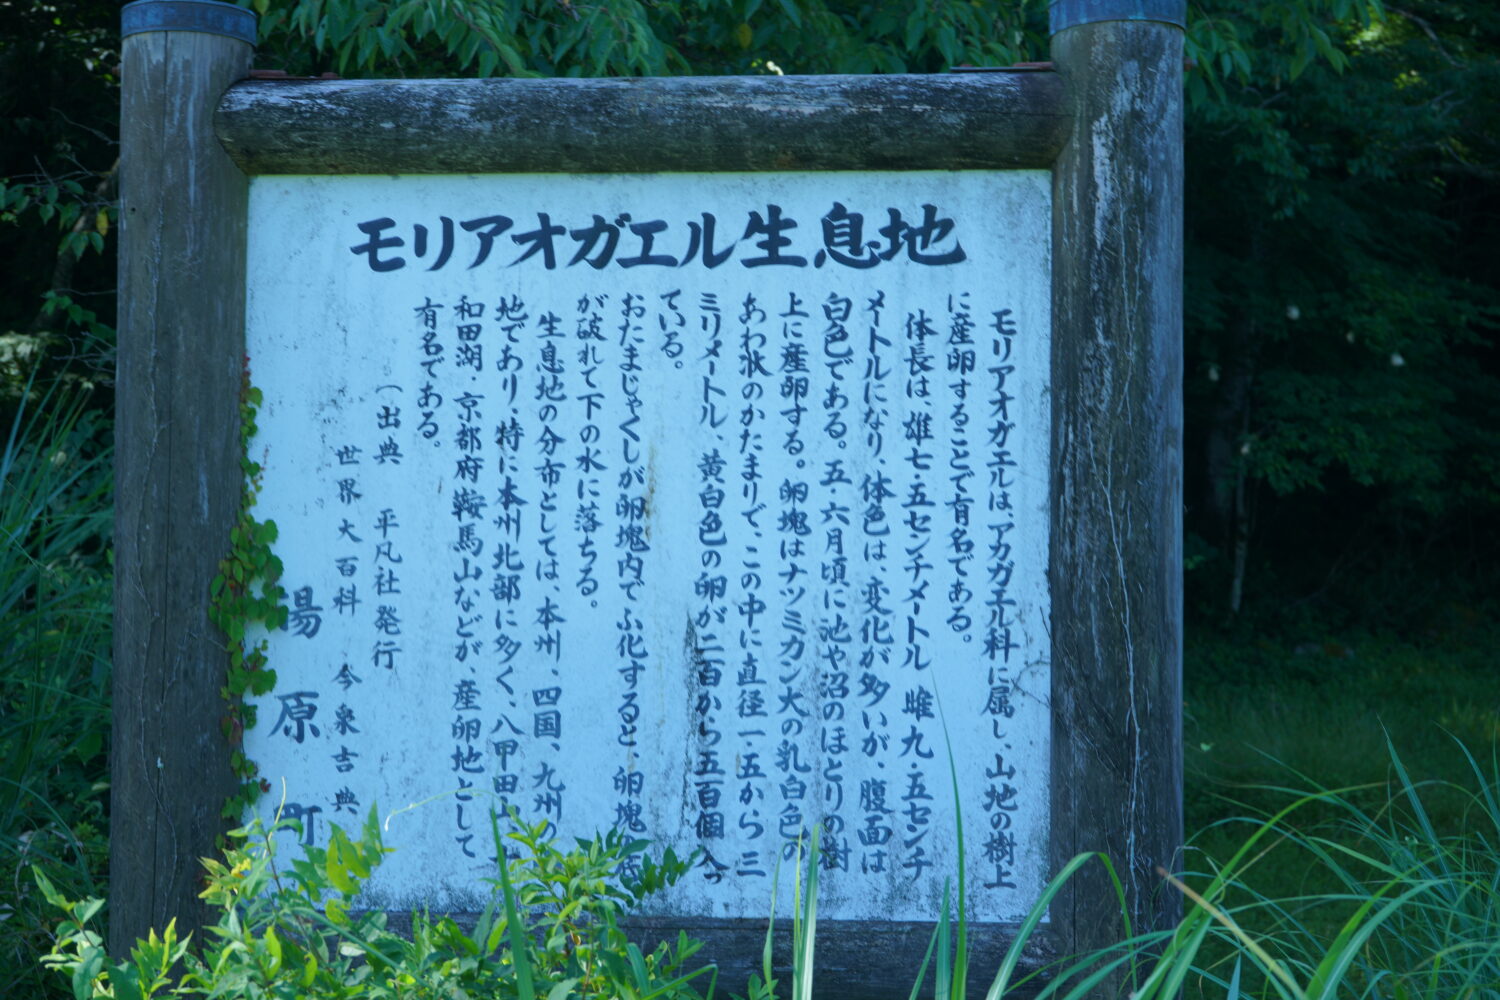 モリアオガエル生息地
モリアオガエルは、アカガエル科に属し、山地の樹上
に産卵することで有名である。
体長は、雄七・五センチメートル 雌九・五センチ
メートルになり、体色は、変化が多いが、腹面は
白色である。五・六月頃に池や沼のほとりの樹
上に産卵する。卵塊はナツミカン大の乳白色の
あわ状のかたまりで、この中に直径一・五から三
ミリメートル、黄白色の卵が二百から五百個入っ
ている。
おたまじゃくしが卵塊内でふ化すると、卵塊
が破れて下の水に落ちる。
生息地の分布としては、本州、四国、九州の
地であり、特に本州北部に多く、八甲田山
和田湖・京都府鞍馬山などが、産卵地として
有名である。
(出典 平凡社発行
世界大百科 今泉吉典
湯原町